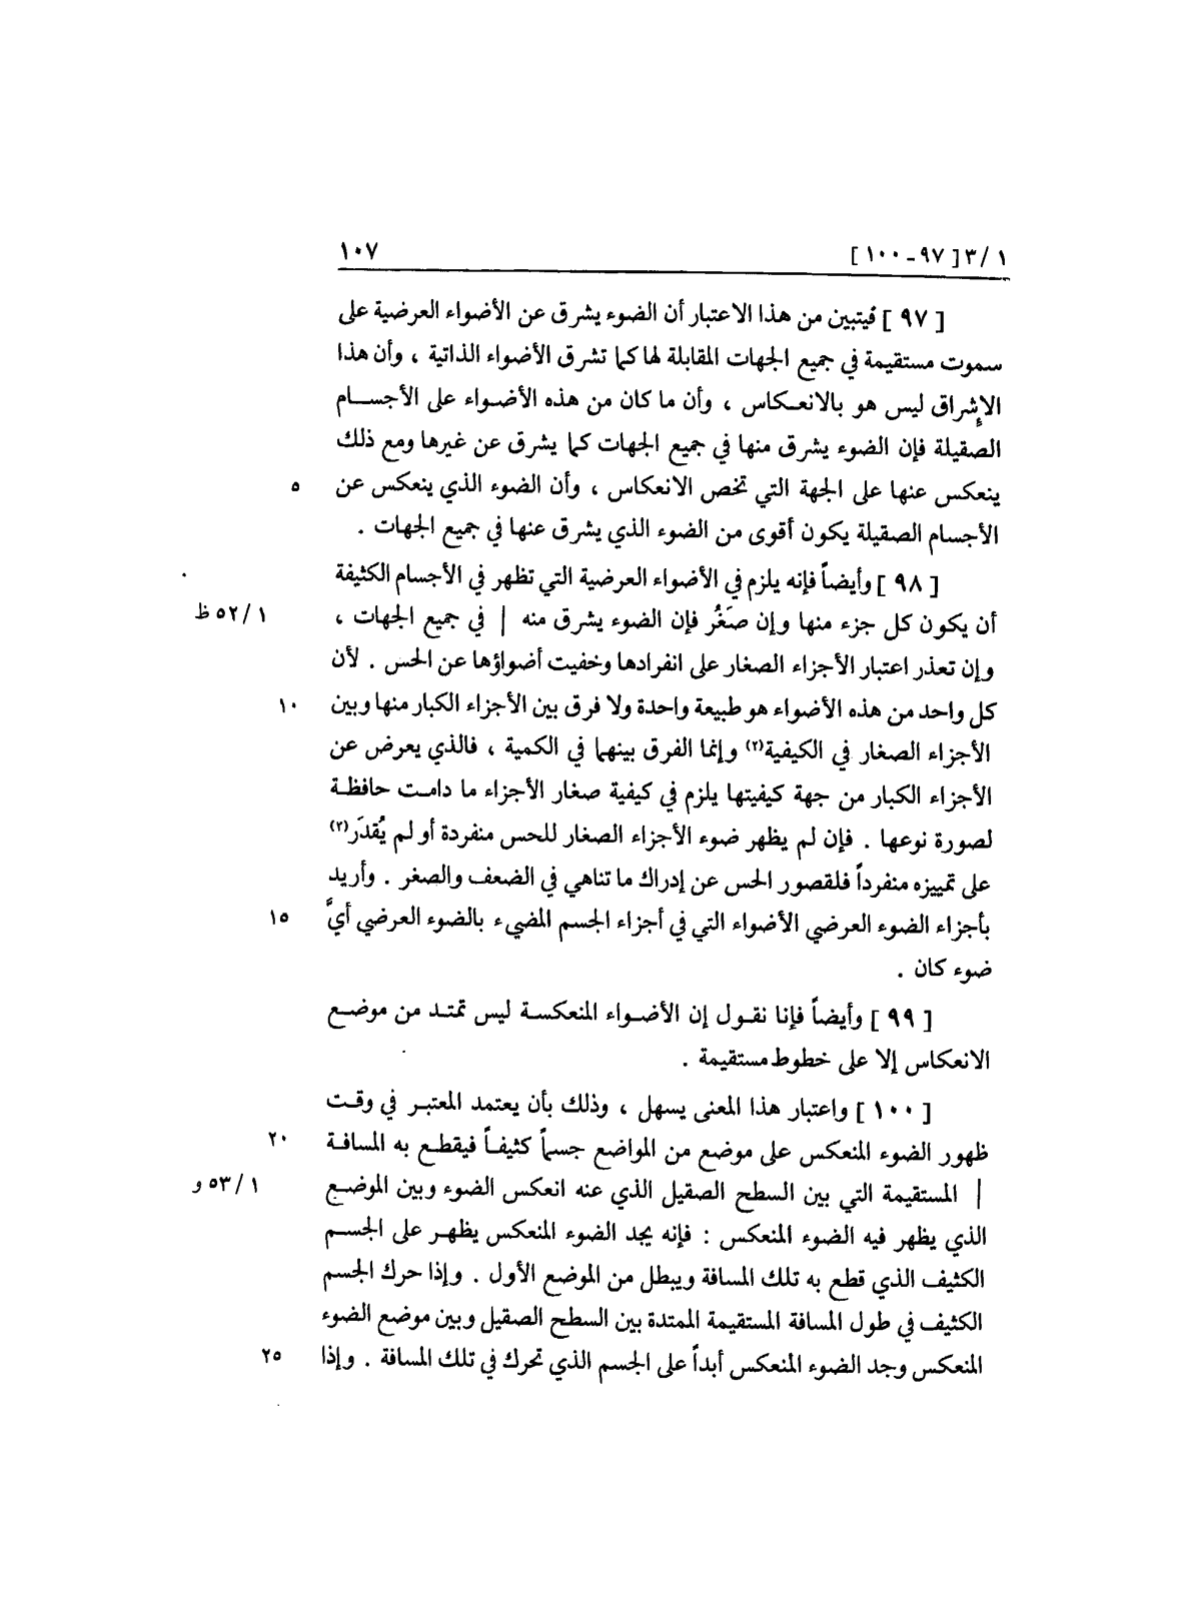 ١ / ٣ [ ٩٧ - ١٠٠ ] ١٠٧
[ ٩٧ ] فيتبين من هذا الاعتبار أن الضوء يشرق عن الأضواء العرضية على
سموت مستقيمة في جميع الجهات المقابلة لها كما تشرق الأضواء الذاتية ، وأن هذا
الإشراق ليس هو بالانعكاس ، وأن ما كان من هذه الأضواء على الأجسام
الصقيلة فإن الضوء يشرق منها في جميع الجهات كما يشرق عن غيرها ومع ذلك
ينعكس عنها على الجهة التي تخص الانعكاس ، وأن الضوء الذي ينعكس عن ٥
الأجسام الصقيلة يكون أقوى من الضوء الذي يشرق عنها في جميع الجهات .
[ ٩٨ ] وأيضاً فإنه يلزم في الأضواء العرضية التي تظهر في الأجسام الكثيفة
أن يكون كل جزء منها وإن صَغُر فإن الضوء يشرق منه | في جميع الجهات ، ١ / ٥٢ ظ
وإن تعذر اعتبار الأجزاء الصغار على انفرادها وخفيت أضواؤها عن الحس . لأن
كل واحد من هذه الأضواء هو طبيعة واحدة ولا فرق بين الأجزاء الكبار منها وبين ١٠
الأجزاء الصغار في الكيفية(٢) وإنما الفرق بينهما في الكمية ، فالذي يعرض عن
الأجزاء الكبار من جهة كيفيتها يلزم في كيفية صغار الأجزاء ما دامت حافظة
لصورة نوعها . فإن لم يظهر ضوء الأجزاء الصغار للحس منفردة أو لم يُقدَر(٣)
على تمييزه منفرداً فلقصور الحس عن إدراك ما تناهي في الضعف والصغر . وأريد
بأجزاء الضوء العرضي الأضواء التي في أجزاء الجسم المضيء بالضوء العرضي أيَّ ١٥
ضوء كان .
[ ٩٩ ] وأيضاً فإنا نقول إن الأضواء المنعكسة ليس تمتد من موضع
الانعكاس إلا على خطوط مستقيمة .
[ ١٠٠ ] واعتبار هذا المعنى يسهل ، وذلك بأن يعتمد المعتبر في وقت
ظهور الضوء المنعكس على موضع من المواضع جسماً كثيفاً فيقطع به المسافة ٢٠
| المستقيمة التي بين السطح الصقيل الذي عنه انعكس الضوء وبين الموضع ١ / ٥٣ و
الذي يظهر فيه الضوء المنعكس : فإنه يجد الضوء المنعكس يظهر على الجسم
الكثيف الذي قطع به تلك المسافة ويبطل من الموضع الأول . وإذا حرك الجسم
الكثيف في طول المسافة المستقيمة الممتدة بين السطح الصقيل وبين موضع الضوء
المنعكس وجد الضوء المنعكس أبداً على الجسم الذي تحرك في تلك المسافة . وإذا ٢٥